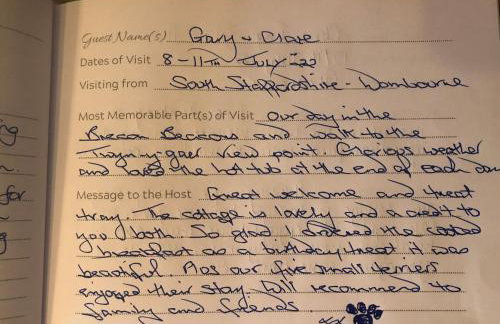 ng
n.
for
g
Guest Name(s) Gary & Clare
Dates of Visit 8 - 11TH JULY -22
Visiting from South Staffordshire - Wombourne
Most Memorable Part(s) of Visit Our day in the
Brecon Beacons and walk to the
view point. Glorious weather
and loved the hot tub at the end of each day
Message to the Host Great welcome and treat
tray. The cottage is lovely and a credit to
you both. So glad I ordered the cooked
breakfast as a birthday treat it was
beautiful. Also our five small terriers
enjoyed their stay. Will recommend to
family and friends.